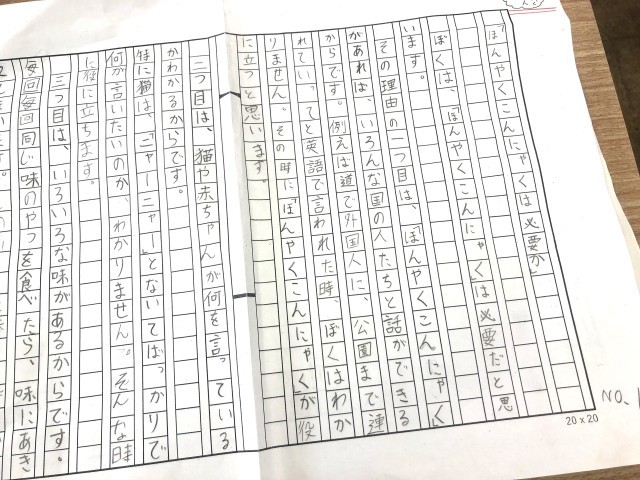 「ほんやくこんにゃくは必要か」
ぼくは、「ほんやくこんにゃく」は必要だと思
います。
その理由の一つ目は、「ほんやくこんにゃく」
があれば、いろんな国の人たちと話ができる
からです。例えば道で外国人に、公園まで連
れていってと英語で言われた時、ぼくはわか
りません。その時に「ほんやくこんにゃく」が役
に立つと思います。
二つ目は、猫や赤ちゃんが何を言っている
かわかるからです。
特に猫は、「ニャーニャー」とないてばっかりで
何が言いたいのか、わかりません。そんな時
に役に立ちます。
三つ目は、いろいろな味があるからです。
毎回毎回同じ味のやつを食べたら、味にあき
NO.1
20×20